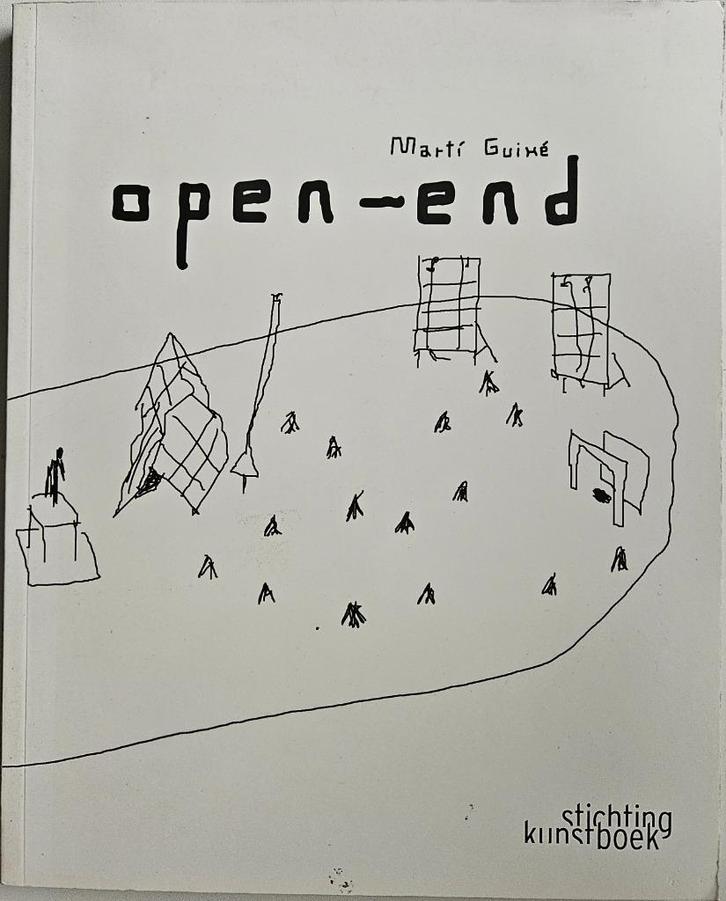 Martí Guixé
open-end
stichting
kunstboek